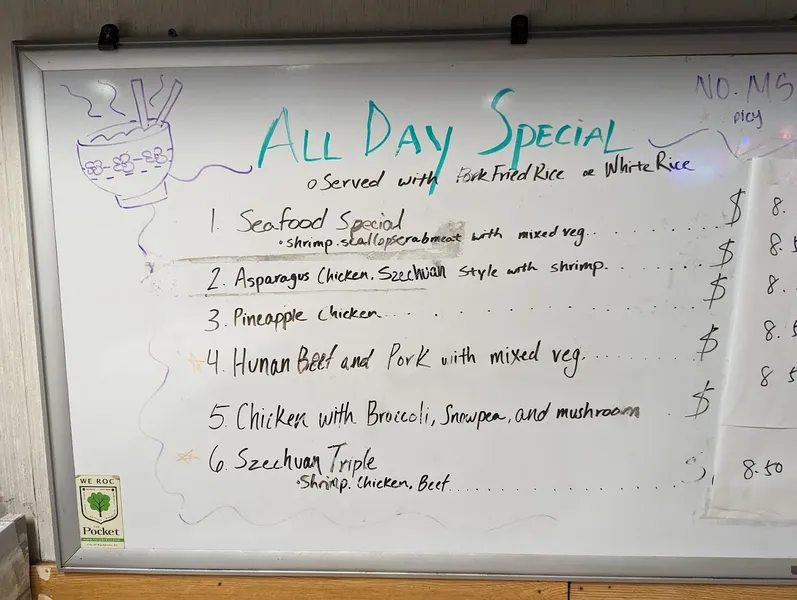 NO. MS
ALL DAY SPECIAL
o Served with Pork Fried Rice or White Rice
1. Seafood Special $ 8.
• shrimp. scallops crabmeat with mixed veg.. . . . . . . .
2. Asparagus Chicken. Szechuan style with shrimp. . . . . . . . $ 8.5
3. Pineapple Chicken. . . . . . . . . . . . $ 8.
4. Hunan Beef and Pork with mixed veg. . . . . . . $ 8.5
5. Chicken with Broccoli, Snowpea, and mushroom . $ 8 5
6. Szechuan Triple
• Shrimp. Chicken, Beef. . . . . . . . . . . . 8.50
WE ROC
Pocket